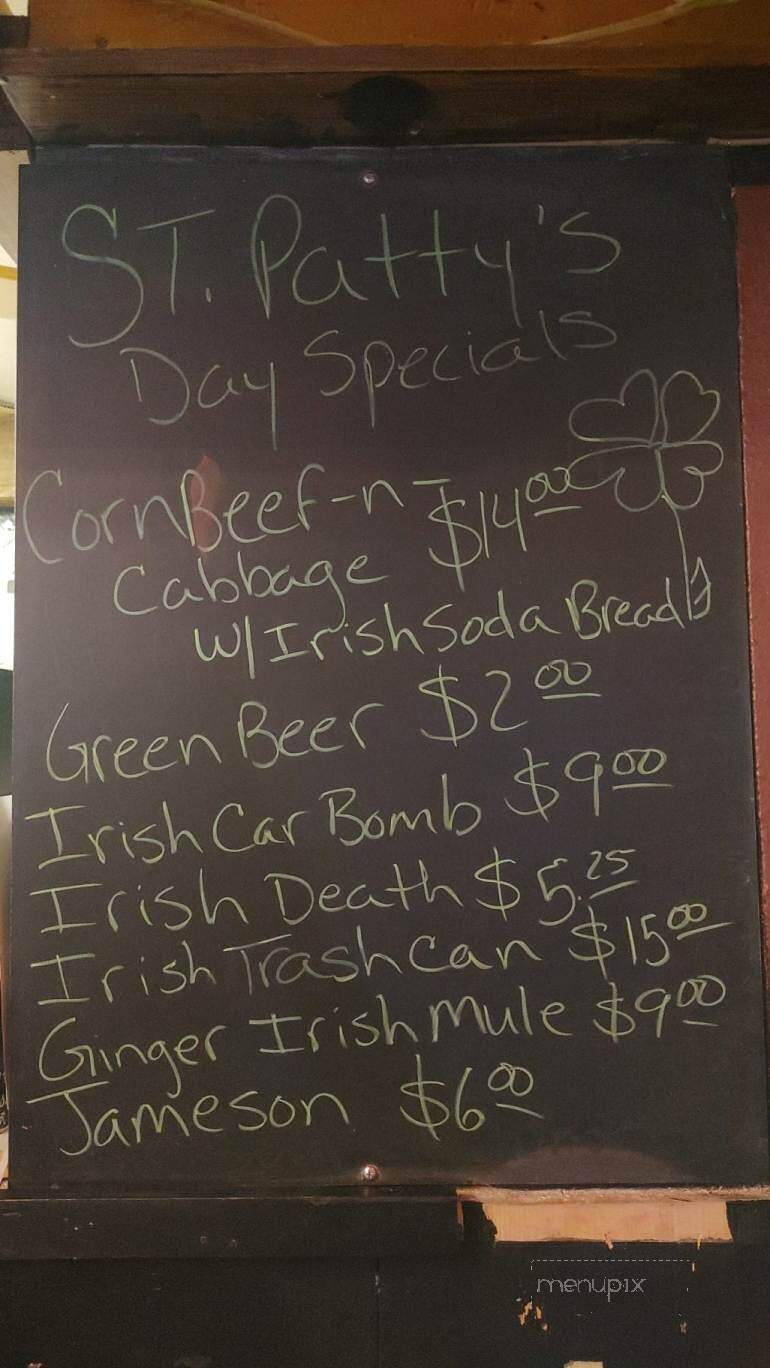 ST. Patty's
Day Specials
CornBeef-n-
Cabbage $14.00
W/ Irish Soda Bread
Green Beer $2.00
Irish Car Bomb $9.00
Irish Death $5.25
Irish Trash Can $15.00
Ginger Irish Mule $9.00
Jameson $6.00
menupix